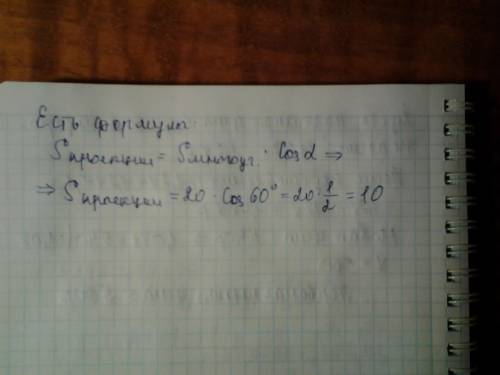 Есть формула:
Sпроекции = Sмногоуг. · cosα ⇒
⇒ Sпроекции = 20 · cos60° = 20 · 1/2 = 10